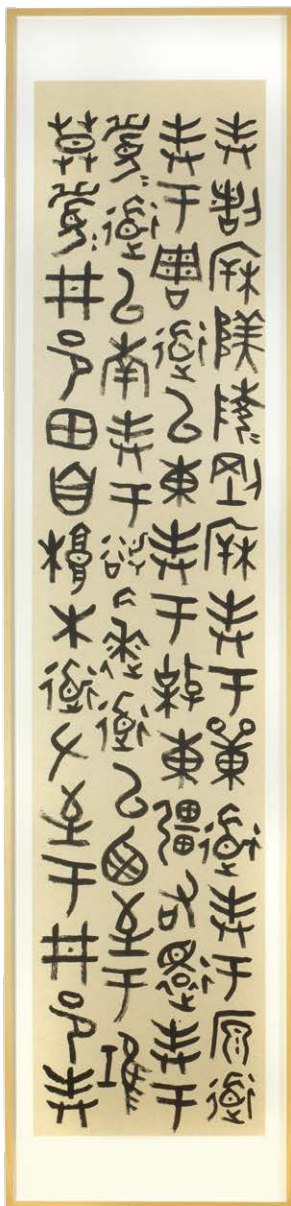 封 陵剛 封于 道封于原道
封于周道以東封于 東疆右還封于
眉道以南封于 逨道以西至于
莫眉井邑田自根木道左至于井邑封